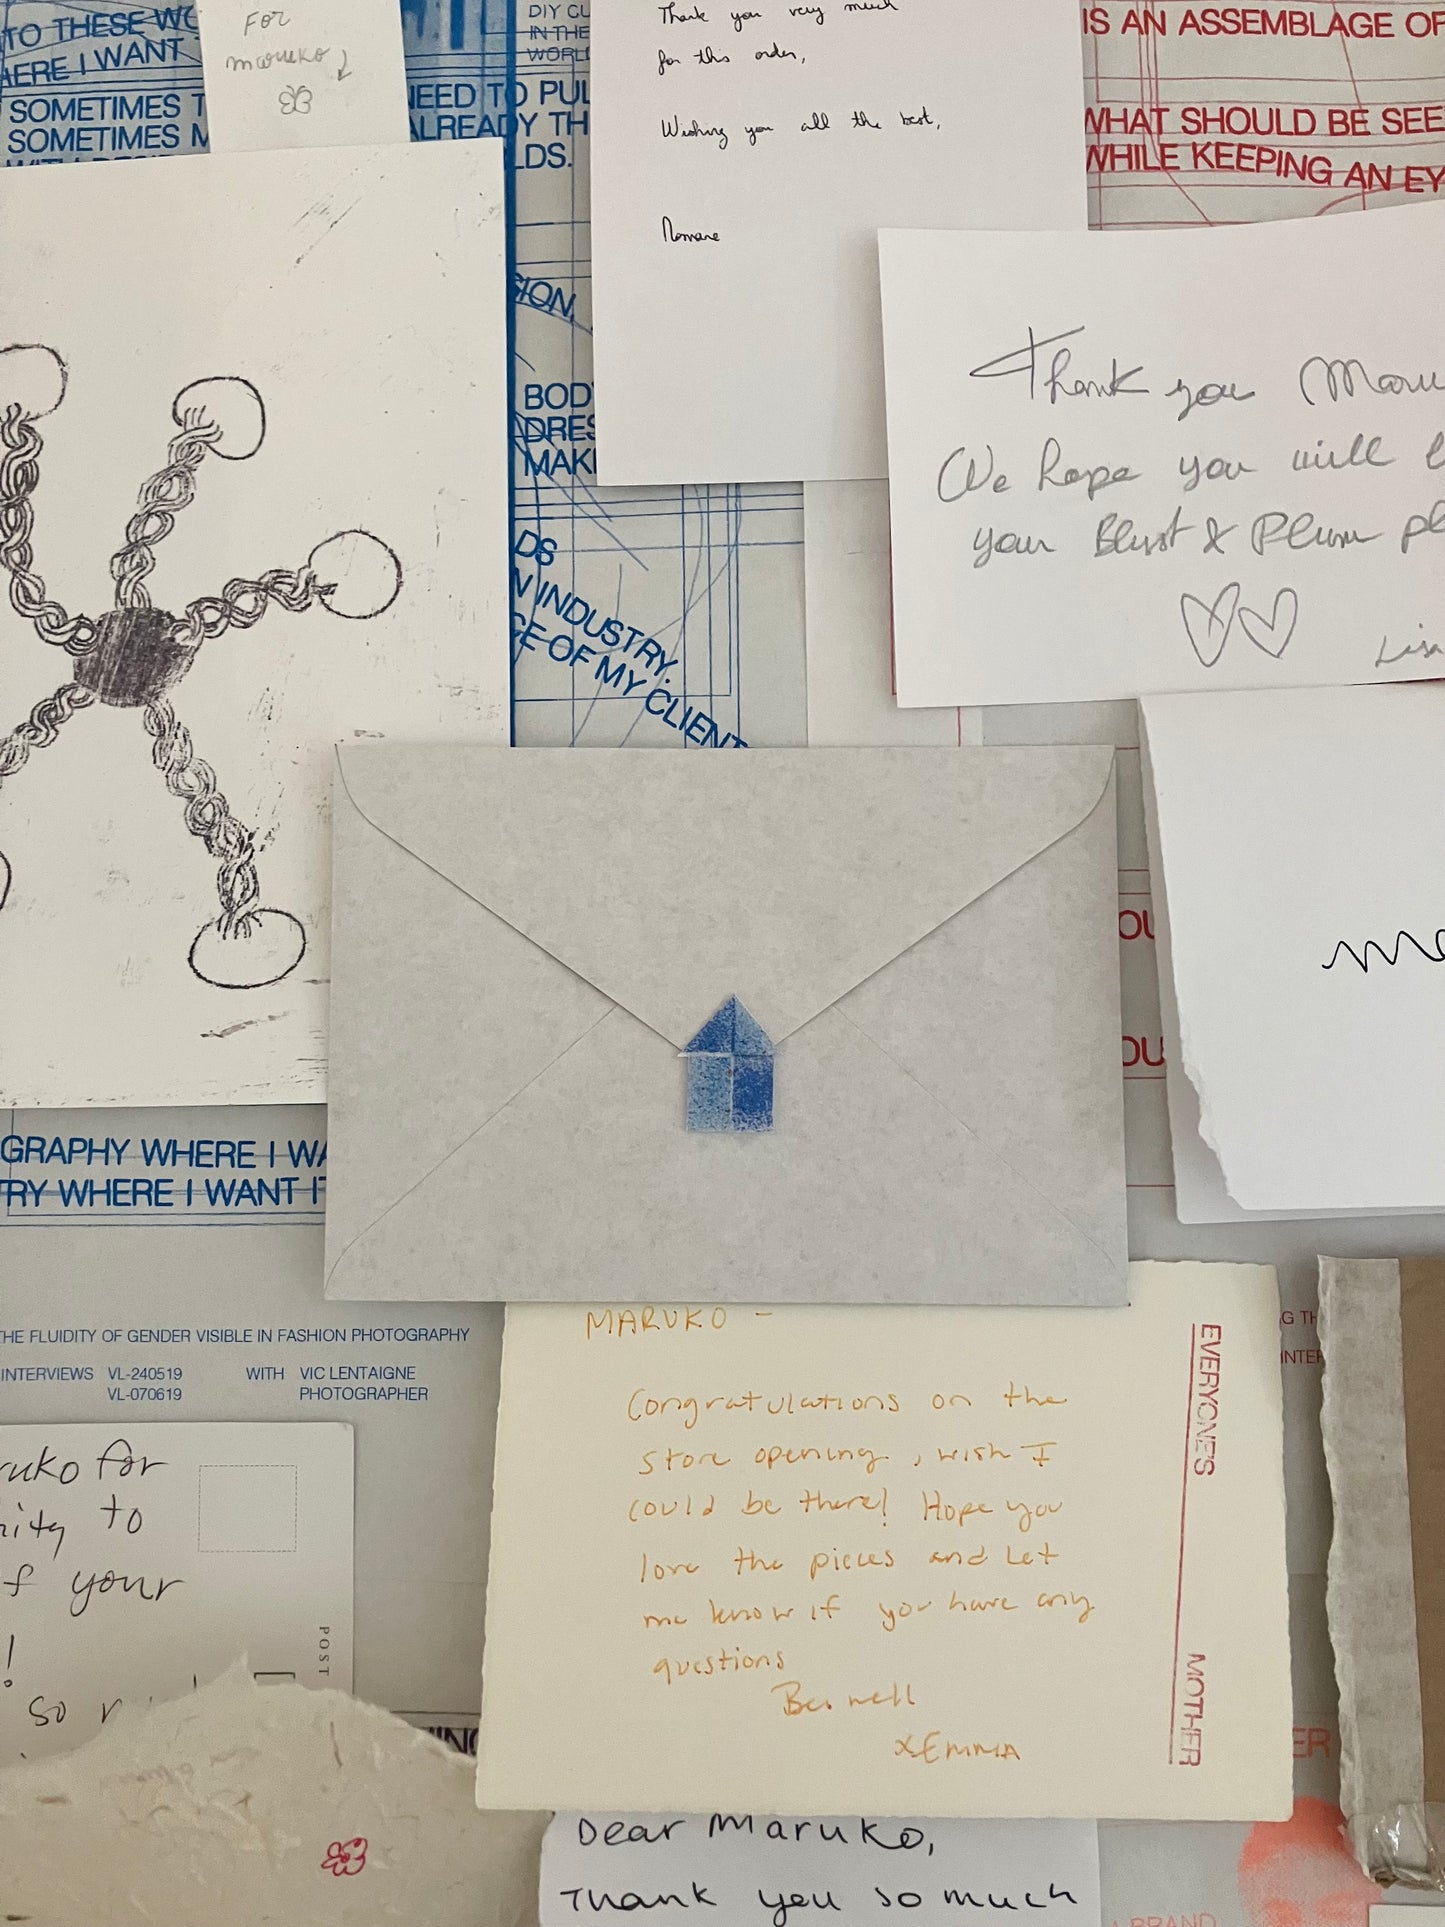 TO THESE WO
HERE I WANT
SOMETIMES T
SOMETIMES M
For
maruko
NEED TO PUL
ALREADY TH
LDS.
DIY CU
IN THE
WORL
Thank you very much
for this order,
Wishing you all the best,
Romane
IS AN ASSEMBLAGE OF
WHAT SHOULD BE SEE
WHILE KEEPING AN EY
SION,
BODY
DRES
MAKI
DS
N INDUSTRY.
CE OF MY CLIENT
Thank you Maru
We hope you will l
your Blust & Plum pl
Lisa
OU
OU
GRAPHY WHERE I WA
TRY WHERE I WANT IT
THE FLUIDITY OF GENDER VISIBLE IN FASHION PHOTOGRAPHY
INTERVIEWS VL-240519 WITH VIC LENTAIGNE
VL-070619 PHOTOGRAPHER
MARUKO -
Congratulations on the
store opening, wish I
could be there! Hope you
love the pieces and let
me know if you have any
questions
Be well
xEMMA
EVERYONE'S
MOTHER
G TH
INTER
ruko for
nity to
f your
!
so
POST
ING
ER
Dear Maruko,
Thank you so much
BRAND